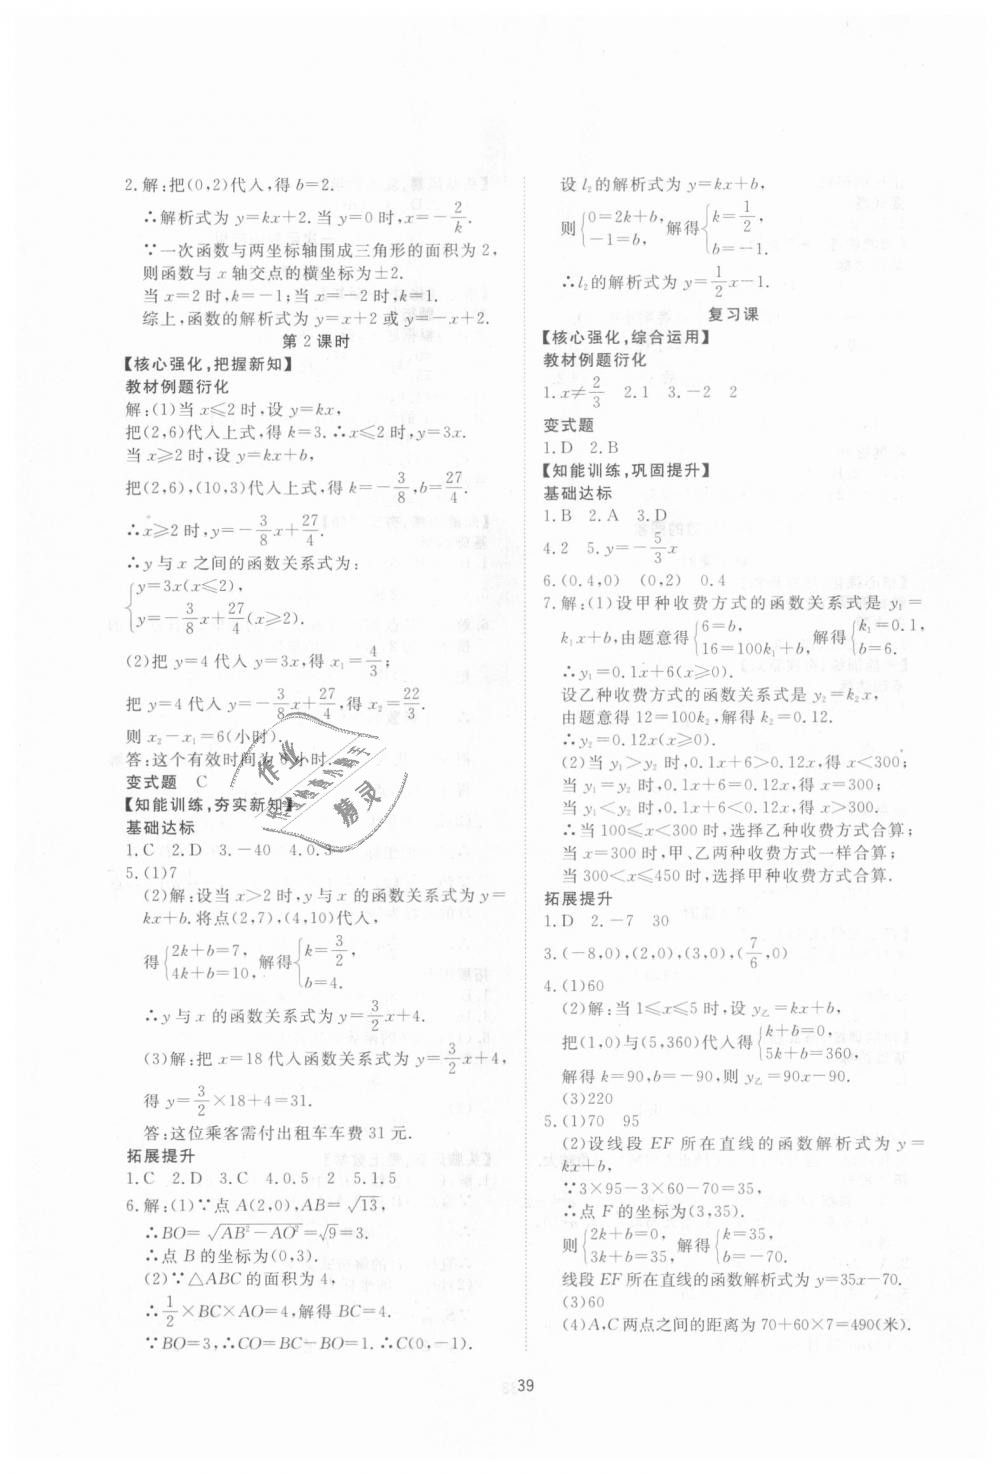 2.解:把(0,2)代入,得 b=2.
∴解析式为 y=kx+2.当 y=0 时,x=-2/k.
∵一次函数与两坐标轴围成三角形的面积为 2,
则函数与 x 轴交点的横坐标为±2.
当 x=2 时,k=-1;当 x=-2 时,k=1.
综上,函数的解析式为 y=x+2 或 y=-x+2.
第 2 课时
【核心强化,把握新知】
教材例题衍化
解:(1)当 x≤2 时,设 y=kx,
把(2,6)代入上式,得 k=3.∴x≤2 时,y=3x.
当 x≥2 时,设 y=kx+b,
把(2,6),(10,3)代入上式,得 k=-3/8,b=27/4.
∴x≥2 时,y=-3/8x+27/4.
∴y 与 x 之间的函数关系式为:
{y=3x(x≤2),
y=-3/8x+27/4(x≥2).
(2)把 y=4 代入 y=3x,得 x₁=4/3;
把 y=4 代入 y=-3/8x+27/4,得 x₂=22/3.
则 x₂-x₁=6(小时).
答:这个有效时间为 6 小时.
变式题 C
【知能训练,夯实新知】
基础达标
1.C 2.D 3.-40 4.0.3
5.(1)7
(2)解:设当 x>2 时,y 与 x 的函数关系式为 y=
kx+b.将点(2,7),(4,10)代入,
得{2k+b=7, 4k+b=10, 解得{k=3/2, b=4.
∴y 与 x 的函数关系式为 y=3/2x+4.
(3)解:把 x=18 代入函数关系式为 y=3/2x+4,
得 y=3/2×18+4=31.
答:这位乘客需付出租车车费 31 元.
拓展提升
1.C 2.D 3.C 4.0.5 2 5.1.5
6.解:(1)∵点 A(2,0),AB=√13,
∴BO=√(AB²-AO²)=√9=3.
∴点 B 的坐标为(0,3).
(2)∵△ABC 的面积为 4,
∴1/2×BC×AO=4,解得 BC=4.
∵BO=3,∴CO=BC-BO=1.∴C(0,-1).
设 l₂的解析式为 y=kx+b,
则{0=2k+b, -1=b, 解得{k=1/2, b=-1.
∴l₂的解析式为 y=1/2x-1.
复习课
【核心强化,综合运用】
教材例题衍化
1.x≠2/3 2.1 3.-2 2
变式题
1.D 2.B
【知能训练,巩固提升】
基础达标
1.B 2.A 3.D
4.2 5.y=-5/3x
6.(0.4,0) (0,2) 0.4
7.解:(1)设甲种收费方式的函数关系式是 y₁=
k₁x+b,由题意得{6=b, 16=100k₁+b, 解得{k₁=0.1, b=6.
∴y₁=0.1x+6(x≥0).
设乙种收费方式的函数关系式是 y₂=k₂x,
由题意得 12=100k₂,解得 k₂=0.12.
∴y₂=0.12x(x≥0).
(2)当 y₁>y₂时,0.1x+6>0.12x,得 x<300;
当 y₁=y₂时,0.1x+6=0.12x,得 x=300;
当 y₁<y₂时,0.1x+6<0.12x,得 x>300.
∴当 100≤x<300 时,选择乙种收费方式合算;
当 x=300 时,甲、乙两种收费方式一样合算;
当 300<x≤450 时,选择甲种收费方式合算.
拓展提升
1.D 2.-7 30
3.(-8,0),(2,0),(3,0),(7/6,0)
4.(1)60
(2)解:当 1≤x≤5 时,设 y乙=kx+b,
把(1,0)与(5,360)代入得{k+b=0, 5k+b=360,
解得 k=90,b=-90,则 y乙=90x-90.
(3)220
5.(1)70 95
(2)设线段 EF 所在直线的函数解析式为 y=
kx+b,
∵3×95-3×60-70=35,
∴点 F 的坐标为(3,35).
则{2k+b=0, 3k+b=35, 解得{k=35, b=-70.
线段 EF 所在直线的函数解析式为 y=35x-70.
(3)60
(4)A,C 两点之间的距离为 70+60×7=490(米).
39
作业
精灵